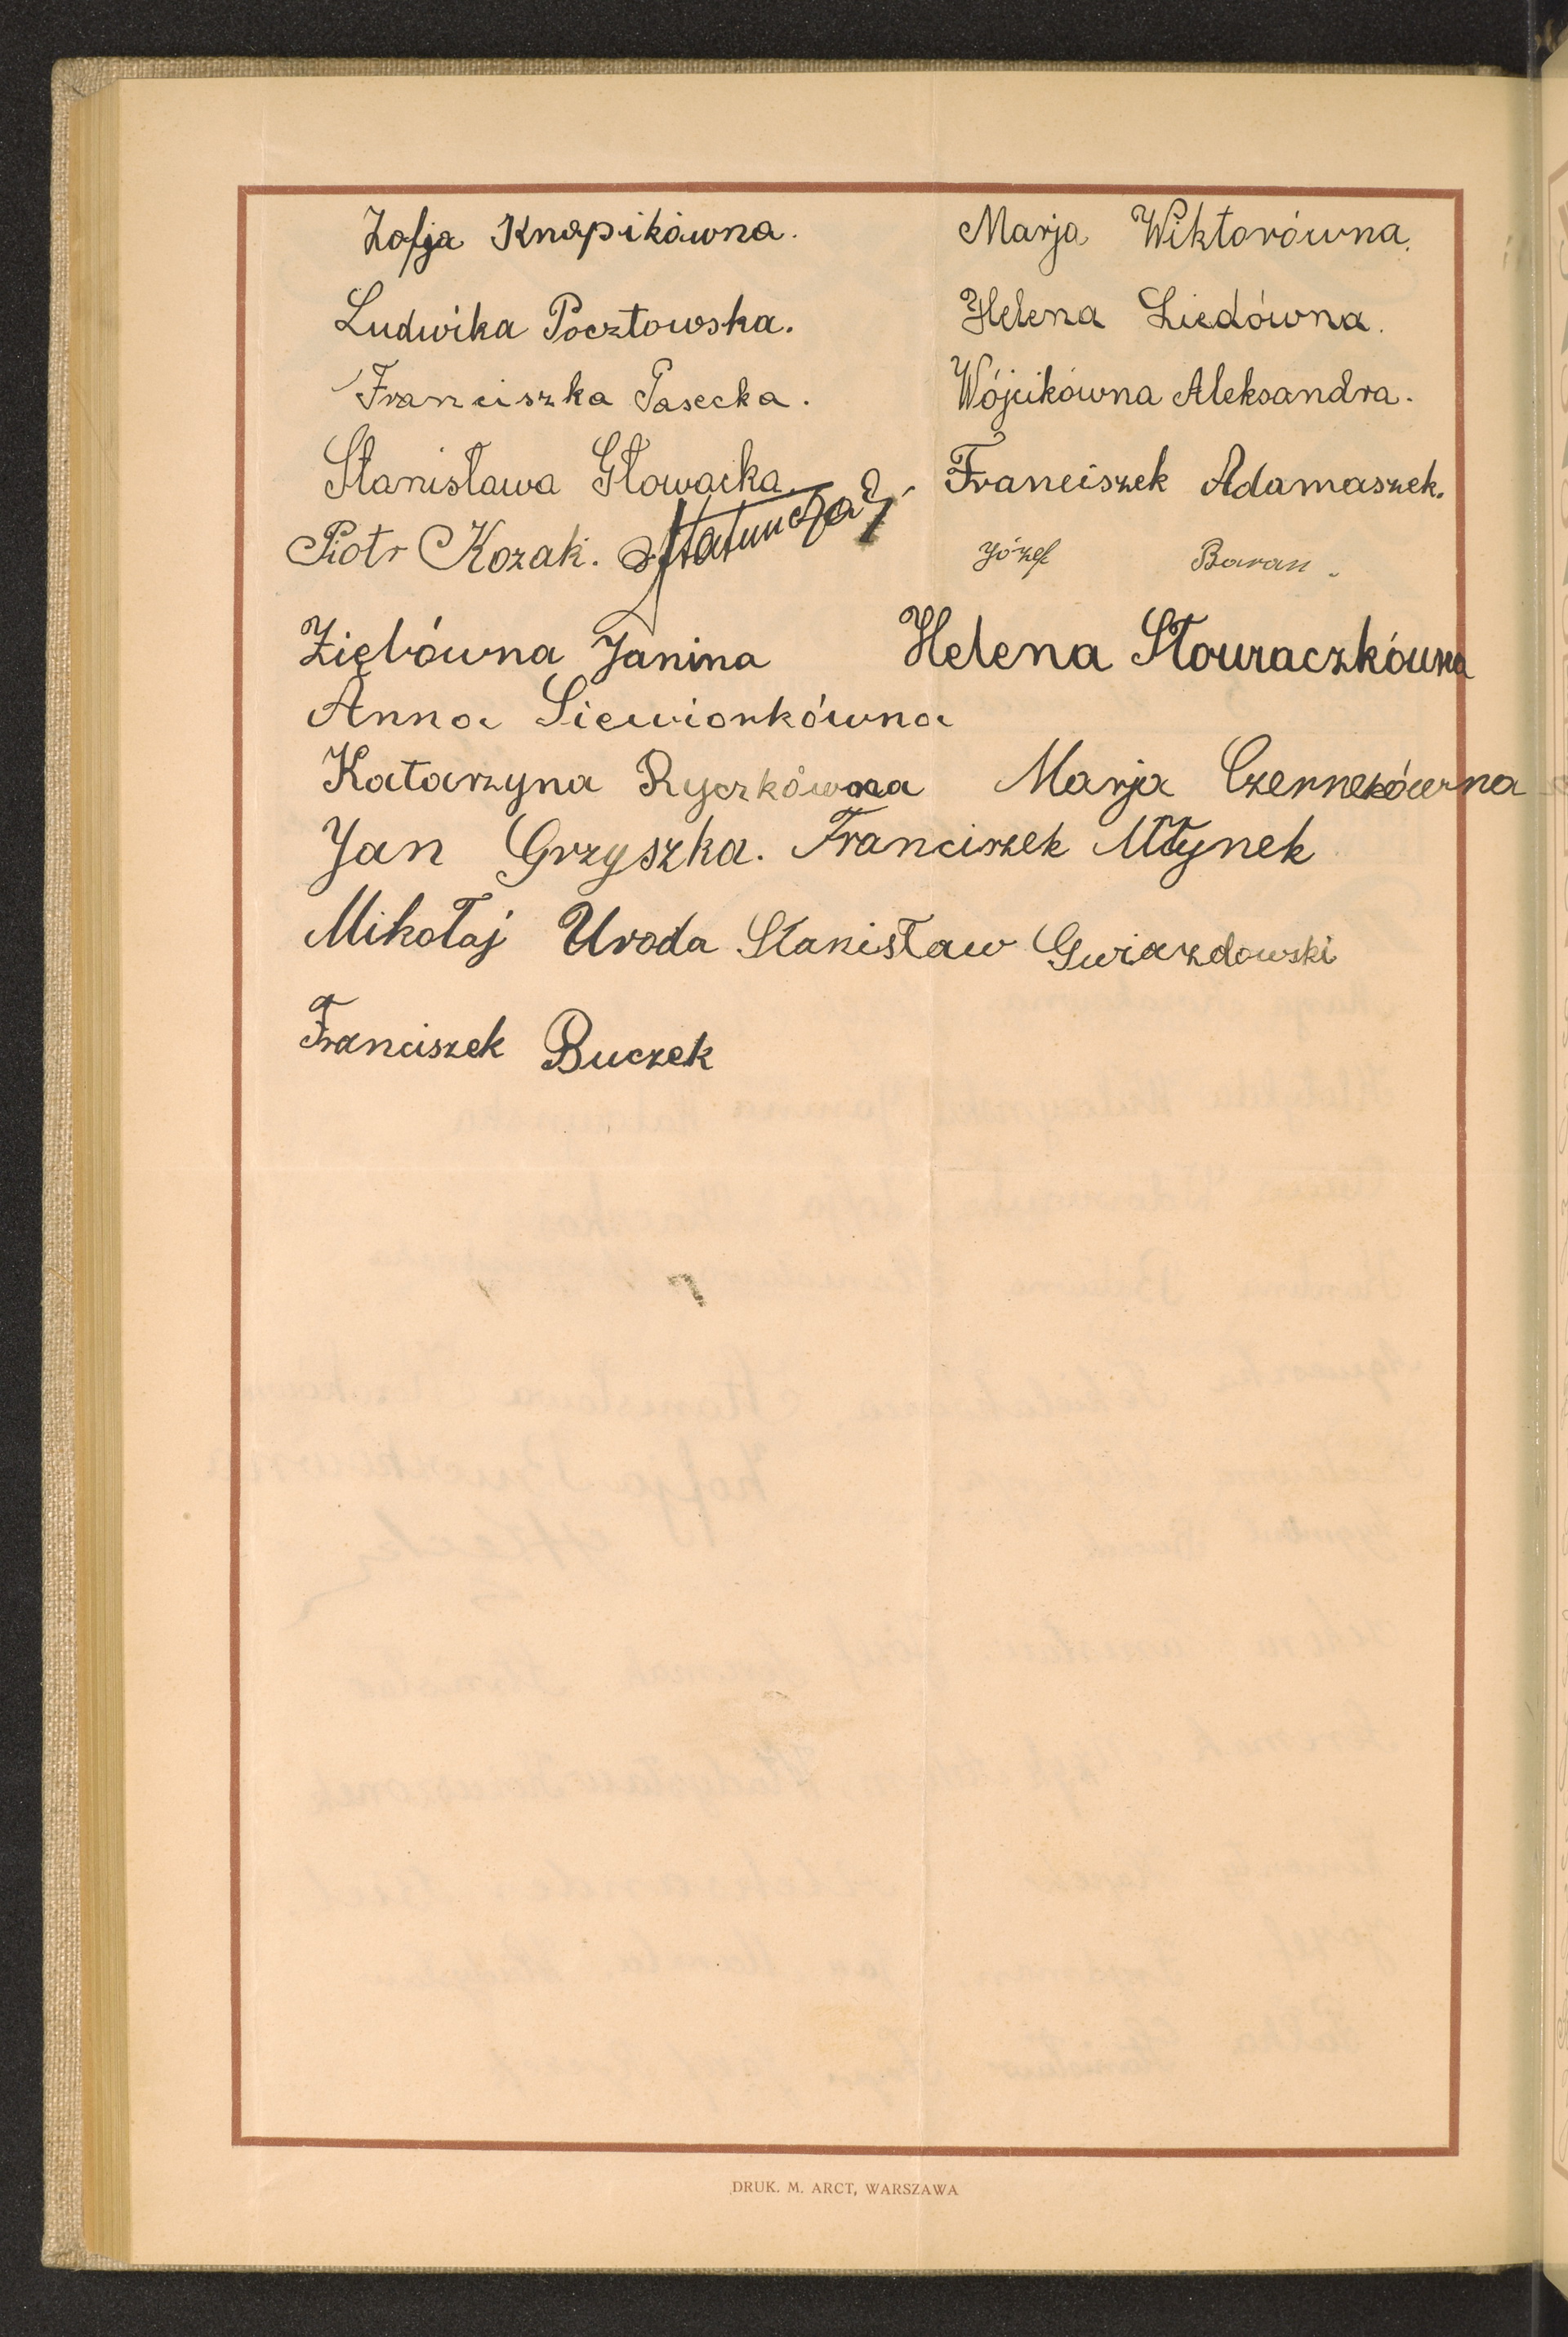 Zofja Knapikówna. Marja Wiktorówna.
Ludwika Pocztowska. Helena Ziedówna.
Franciszka Pasecka. Wójcikówna Aleksandra.
Stanisława Głowacka. Franciszek Adamaszek.
Piotr Kozak. Józef Baran.
Ziębówna Janina Helena Słowraczkówna
Anna Siewiorkówna
Katarzyna Ryczkówna Marja
Jan Grzyszka. Franciszek Młynek
Mikołaj Uroda Stanisław Gwiazdowski
Franciszek Buczek
DRUK. M. ARCT, WARSZAWA